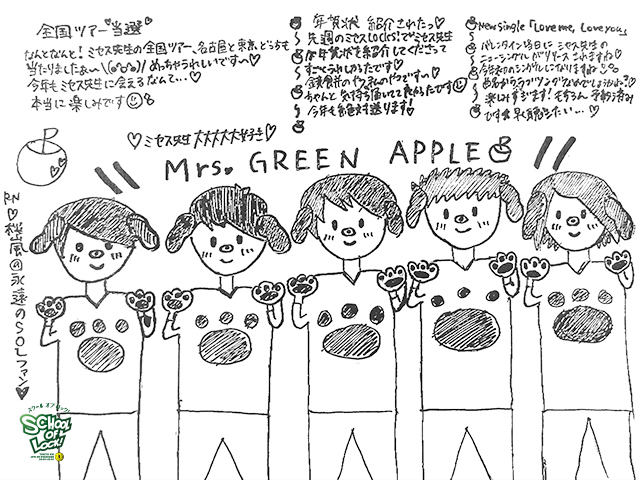 全国ツアー当選
なんとなんと！ミセス先生の全国ツアー、名古屋と東京、どっちも
当たりましたぁ〜\\(◎°▽°◎)/ めっちゃうれしいです〜♡
今年もミセス先生に会えるなんて...♡
本当に楽しみです☺
年賀状 紹介されたっ♡
先週のミセスLOCKS!でミセス先生
が年賀状を紹介してくださって
すごくうれしかったです♡
ちゃんと気持ち届いてて良かったです☺
今年も絶対送ります！
New single「Love me, Love you」
バレンタイン当日に ミセス先生の
ニューシングルがリリースされますね♡
楽しみすぎます！もちろん 予約済み
♡ミセス先生 大大大大大好き♡
Mrs. GREEN APPLE
RN♡桜嵐@永遠のSOLファン♥
スクール オブ ロック！
SCHOOL
OF
LOCK!